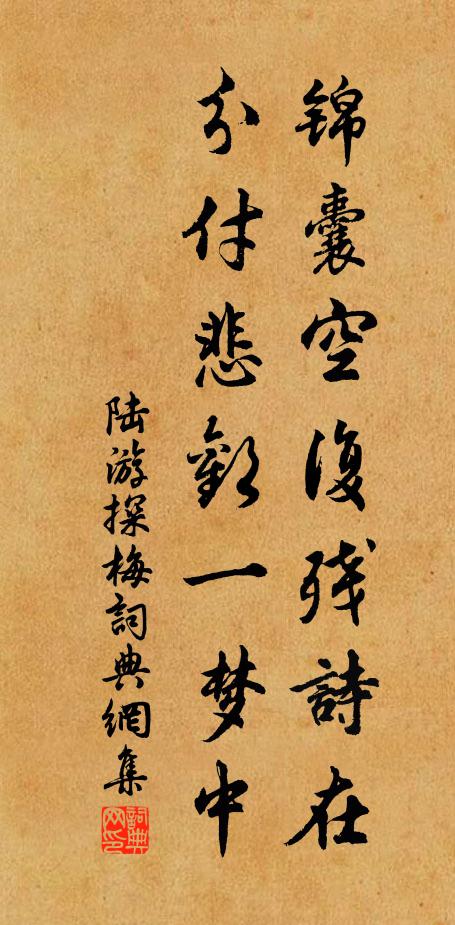 锦囊空復残詩在
分付悲歡一梦中
陆游探梅詞典網集
詞典网印